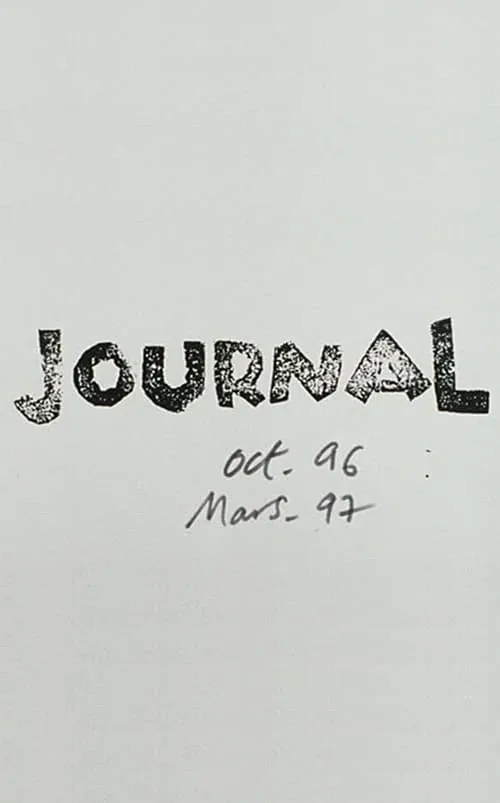 JOURNAL
Oct. 96
Mars. 97